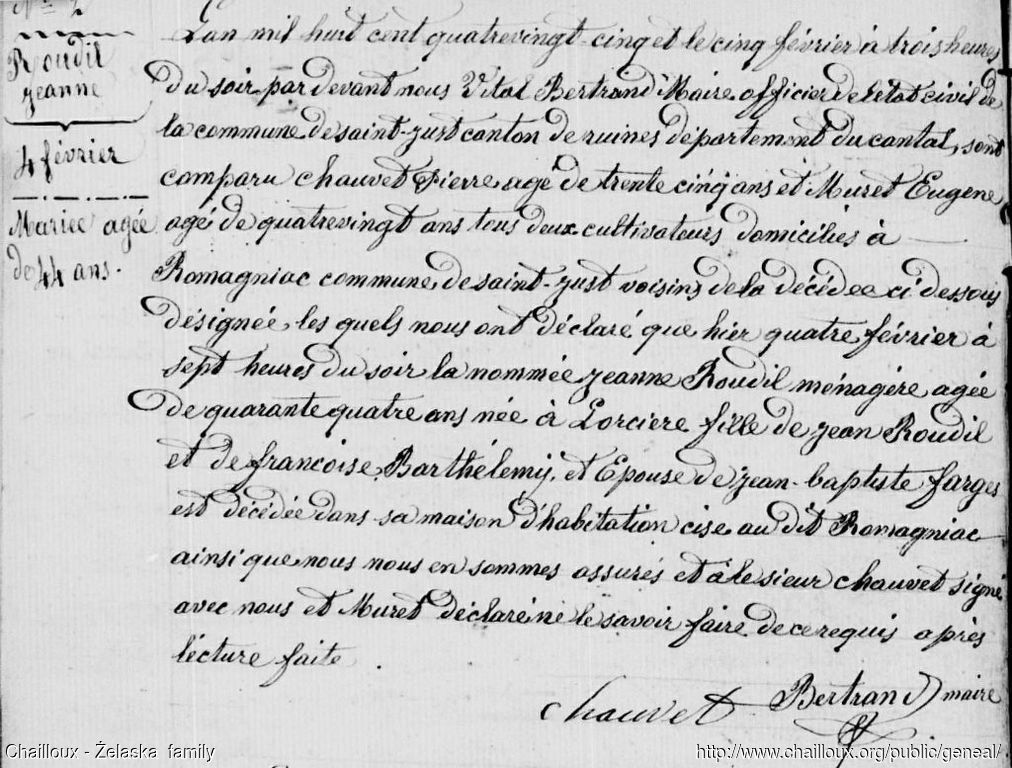 N° 2
Roudil
jeanne
4 février
Mariée agée
de 44 ans.
Lan mil huit cent quatrevingt-cinq et le cinq février à trois heures
du soir par devant nous Vital Bertrand Maire officier de letat civil de
la commune de saint-just canton de ruines département du cantal, sont
comparu chauvet Pierre agé de trente cinq ans et Muret Eugene
agé de quatrevingt ans tous deux cultivateurs domiciliés à
Romagniac commune de saint-just voisins de la décédée ci dessous
désignée, les quels nous ont déclaré que hier quatre février à
sept heures du soir la nommée jeanne Roudil ménagére agée
de quarante quatre ans née à Lorciere fille de jean Roudil
et de francoise Barthélemy, et Epouse de jean-baptiste farges
est décédée dans sa maison d'habitation cise au dit Romagniac
ainsi que nous nous en sommes assurés et à le sieur chauvet signé
avec nous et Muret déclaré ne le savoir faire de ce requis après
lécture faite.
Chauvet Bertrand maire
Chailloux - Želaska family
http://www.chailloux.org/public/geneal/